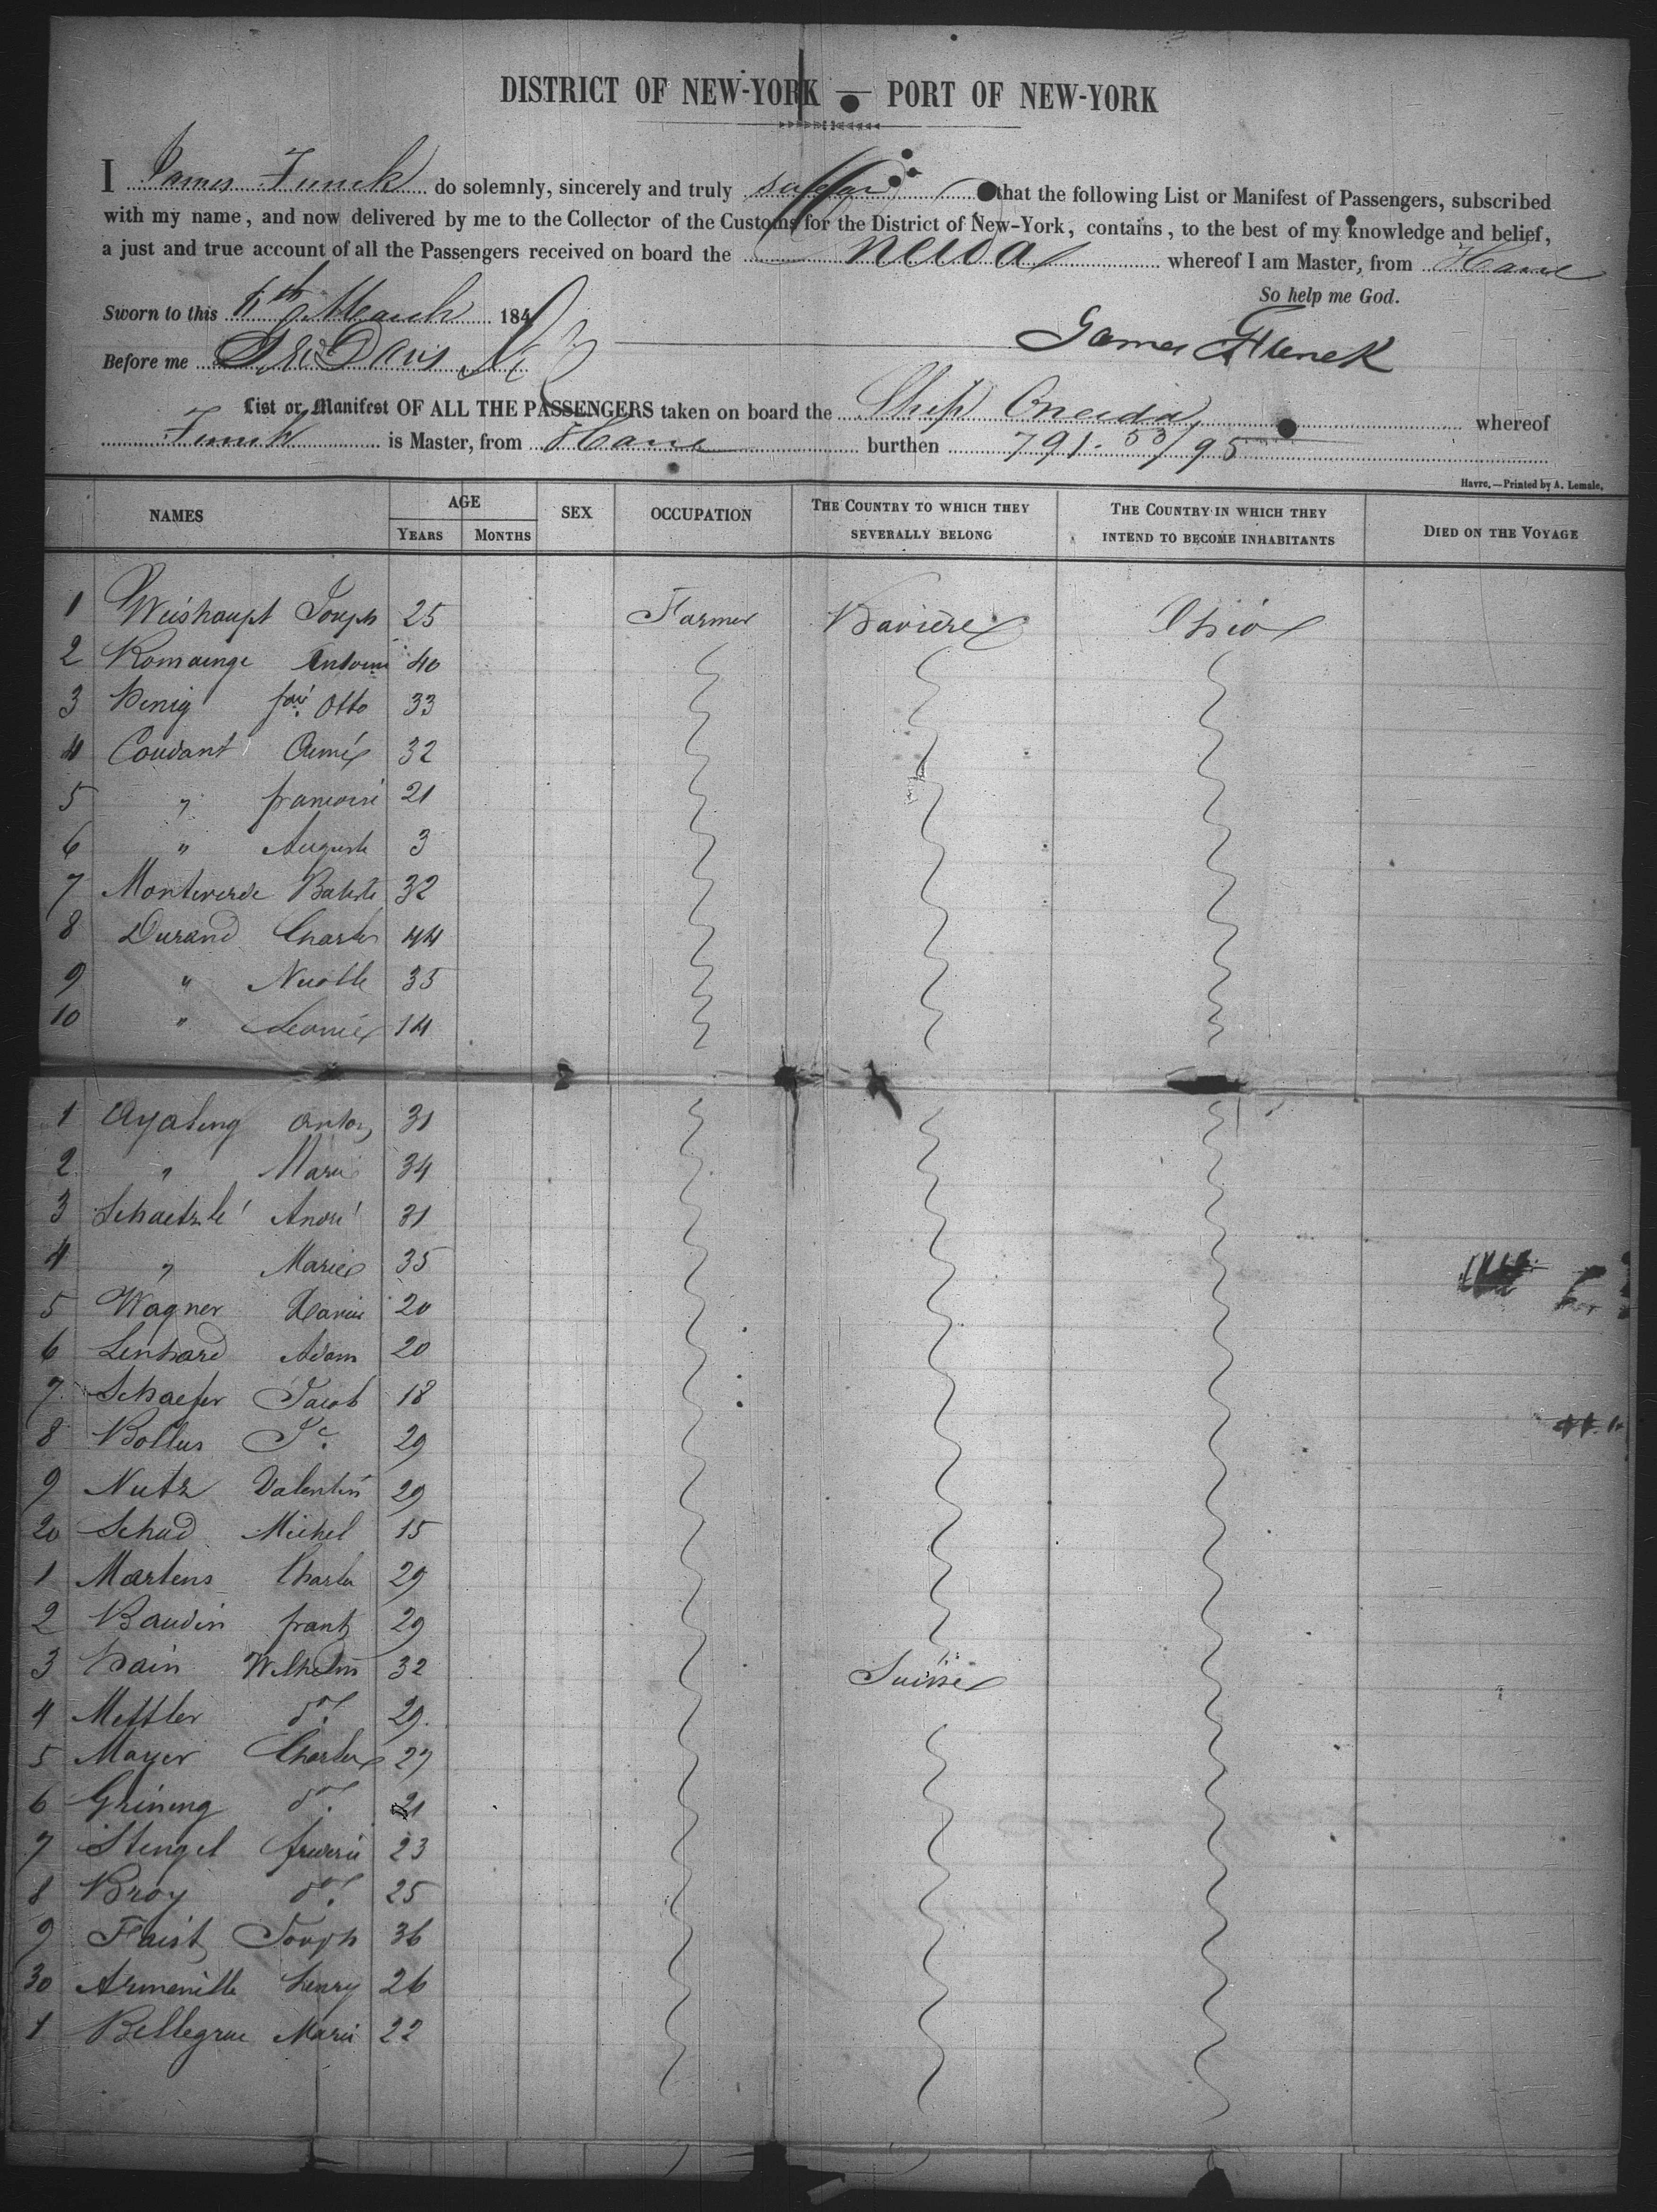 DISTRICT OF NEW-YORK — PORT OF NEW-YORK
I James Funck do solemnly, sincerely and truly swear that the following List or Manifest of Passengers, subscribed
with my name, and now delivered by me to the Collector of the Customs for the District of New-York, contains, to the best of my knowledge and belief,
a just and true account of all the Passengers received on board the Oneida whereof I am Master, from Havre
So help me God.
Sworn to this March 184
James Funck
Before me Davis
List or Manifest OF ALL THE PASSENGERS taken on board the Ship Oneida whereof
Funck is Master, from Havre burthen 791. 53/95
Havre.—Printed by A. Lemale.
NAMES AGE SEX OCCUPATION THE COUNTRY TO WHICH THEY SEVERALLY BELONG THE COUNTRY IN WHICH THEY INTEND TO BECOME INHABITANTS DIED ON THE VOYAGE
YEARS MONTHS
1 Weishaupt Joseph 25 Farmer Baviere Ohio
2 Romainge Antoine 40
3 Henig Otto 33
4 Coudant Aimé 32
5 " francoise 21
6 " Auguste 3
7 Monteverde Batiste 32
8 Durand Charles 44
9 " 35
10 " Leonie 14
1 Ayaling Anton 31
2 " Marie 34
3 Schaetzlé André 31
4 " Marie 35
5 Wagner Xavier 20
6 Lenhard Adam 20
7 Schaefer Jacob 18
8 Bollus Jc. 29
9 Nutz Valentin 29
20 Schad Michel 15
1 Martens Charles 29
2 Baudin frantz 29
3 hain Wilhelm 32 Suisse
4 Mettler do. 29.
5 Mayer Charles 27
6 Grining do. 21
7 Stengel frederic 23
8 Broy do. 25
9 Faist Joseph 36
30 Armeville henry 26
1 Bellegrue Marie 22